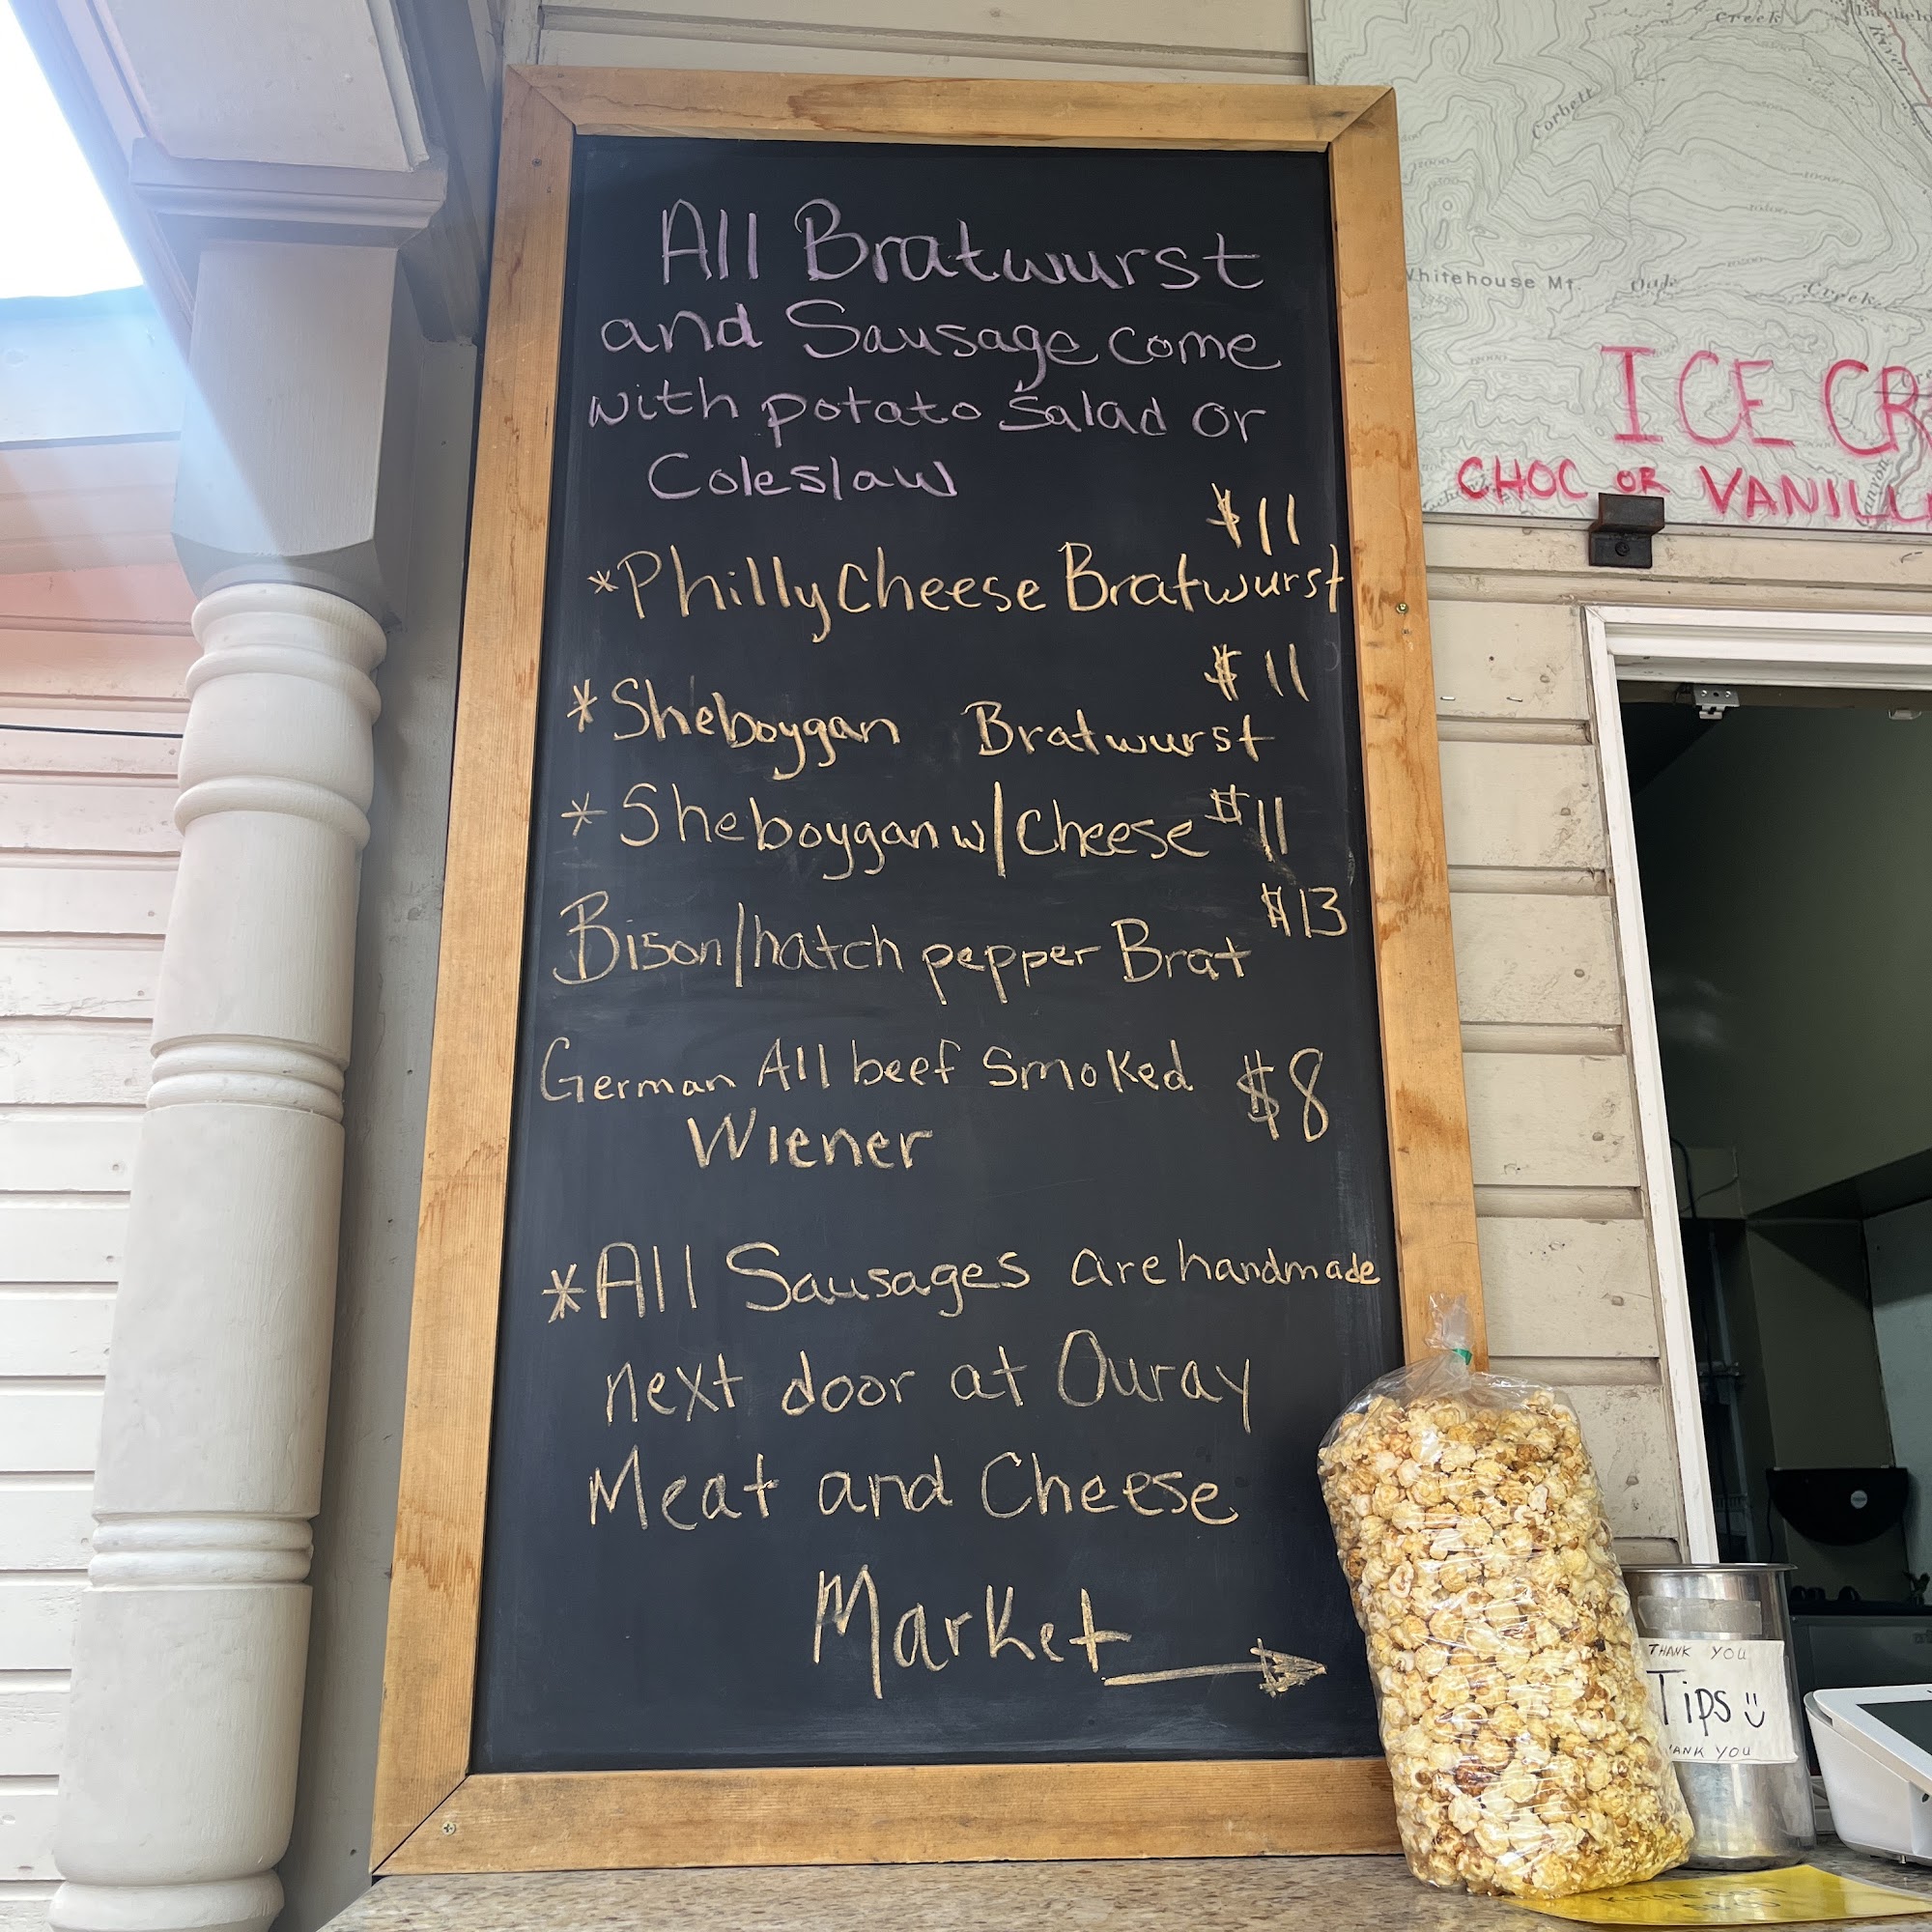 All Bratwurst
and Sausage come
with potato Salad or
Coleslaw
$11
*Philly Cheese Bratwurst
$11
*Sheboygan Bratwurst
*Sheboygan w/Cheese $11
$13
Bison/hatch pepper Brat
German All beef Smoked $8
Wiener
*All Sausages are handmade
next door at Ouray
Meat and Cheese
Market
Creek
Corbett
Whitehouse Mt.
Oak Creek
ICE CR
CHOC OR VANILL
THANK YOU
Tips
ANK YOU